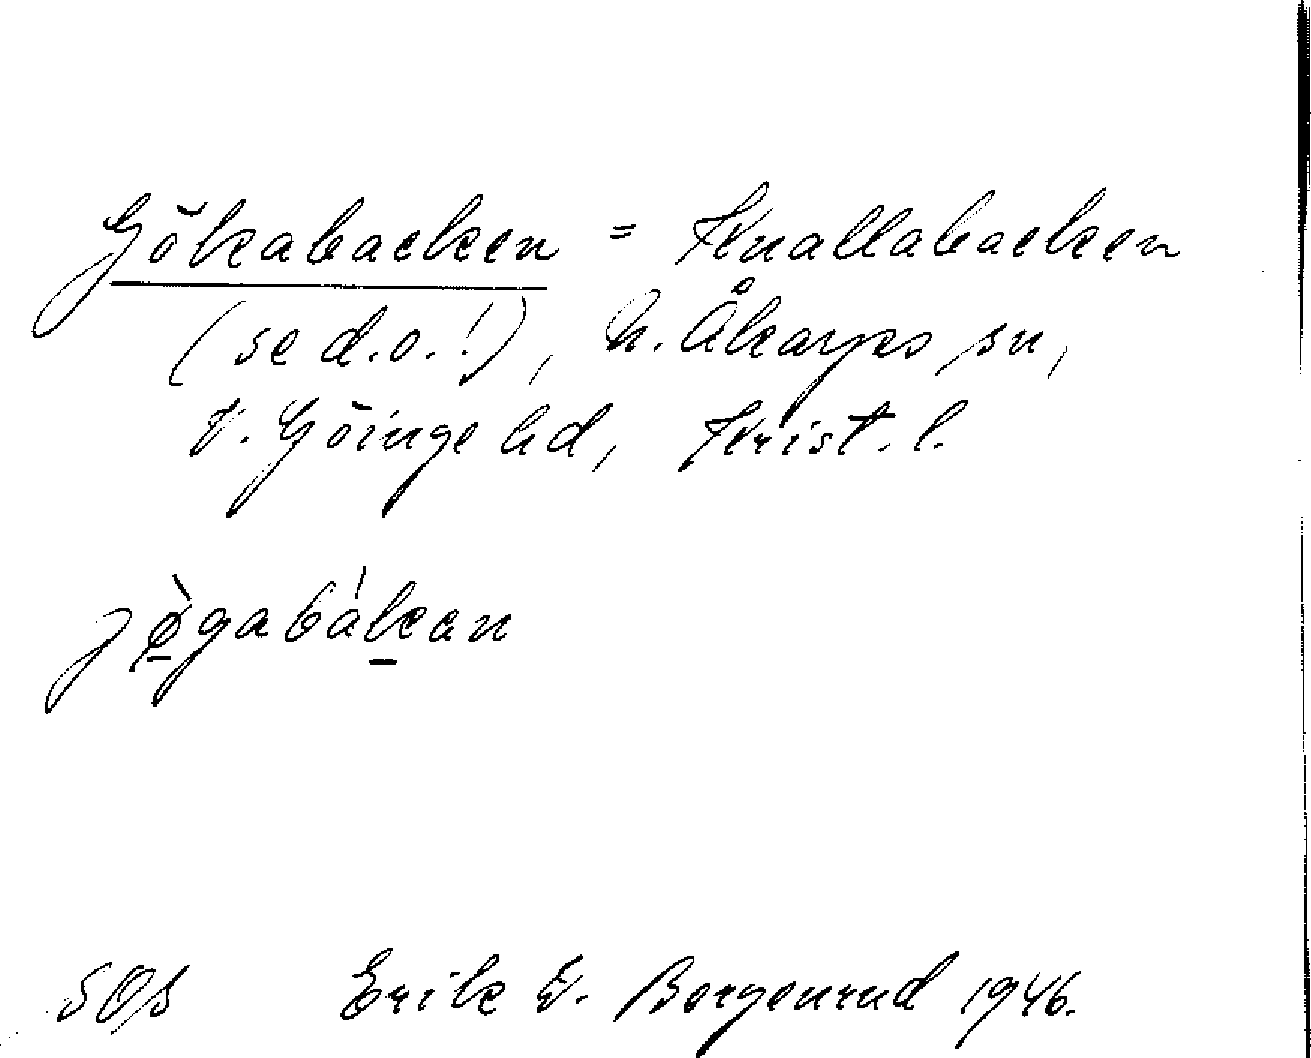 Gökabacken = Knallabacken
(se d.o.!), N. Åkarps sn,
V. Göinge hd, Krist. l.
jø̀gabákan
SOS Erik V. Borgenrud 1946.